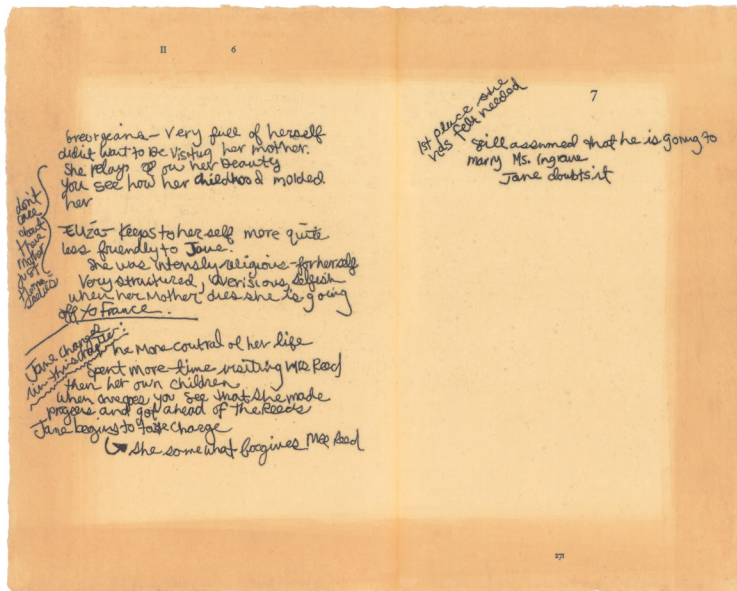 II 6
Georgeana - Very full of herself
didn't want to be visiting her mother.
She relays on her beauty
You see how her childhood molded
her
don't
care
about
there
mother
just
them
selves
Eliza - Keeps to her self more quite
less friendly to Jane.
She was intensly religious - for her self
Very structured, averisious, selfish
when her Mother dies she is going
off to France.
Jane changes
in this chapter:
the More control of her life
Spent more time visiting Mrs Reed
then her own children
you see that she made
progress and got ahead of the Reeds
Jane begins to take charge
↳ she somewhat forgives Mrs Reed
7
1st place she
has felt needed
Still assumed that he is going to
marry Ms. Ingrave
Jane doubts it
271